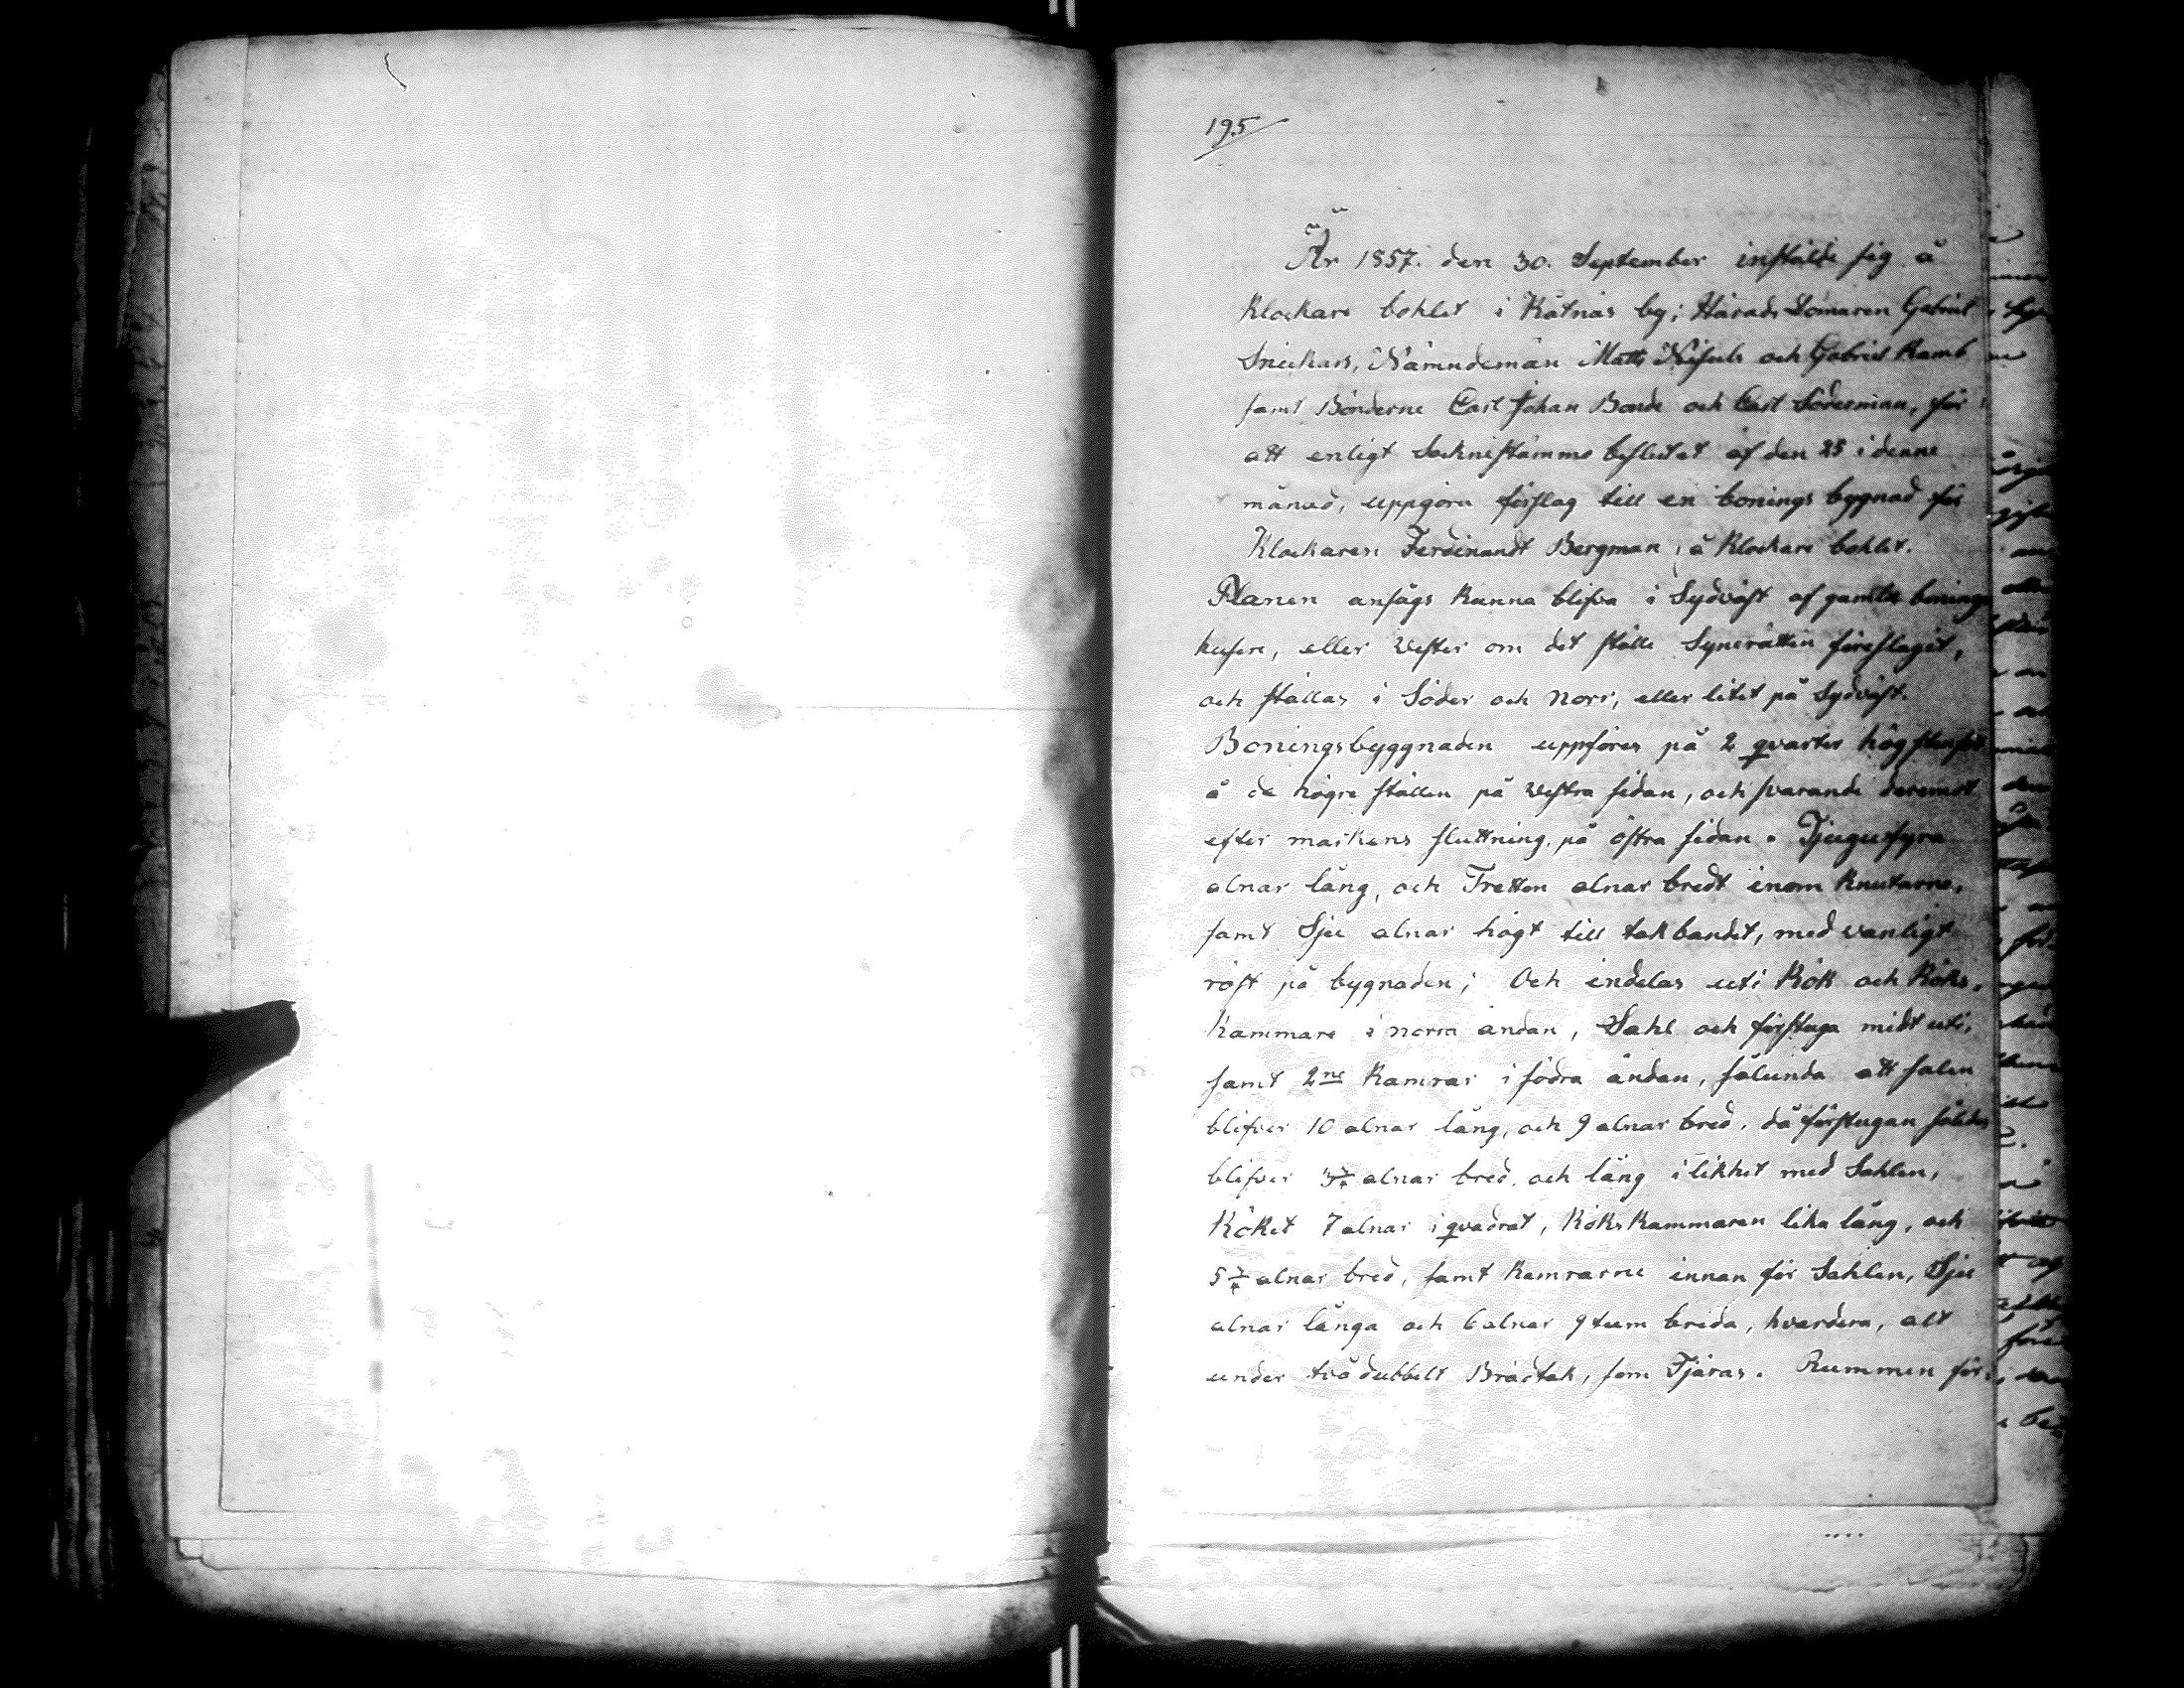 195
År 1857. den 30. September instälde sig å
Klockare bohlet i Kåtnäs by; Härads Domaren Gabriel
Snickars, Nämndemän Matts och Gabriel Ramb
samt Bönderne Carl Johan Bonde och Carl Söderman, för
att enligt Sockne stämmo beslutet af den 25 i denne
månad, uppgöra förslag till en bonings bygnad för
Klockaren Ferdinandt Bergman, å Klockare bohlet.
Planen ansågs kunna blifva i Sydväst af gamla bonings
husen, eller Wester om det ställe Synerätten föreslagit,
och ställas i Söder och Norr, eller litet på Sydväst.
Boningsbyggnaden uppföres på 2 qvarter hög stenfot
å de högre ställen på Westra sidan, och svarande deremot
efter markens sluttning, på östra sidan. Tjugufyra
alnar lång, och Tretton alnar bredt inom knutarne,
samt Sju alnar högt till takbandet, med vanligt
röst på bygnaden; Och indelas uti Kök och Köks-
Kammare i norra ändan, Sahl och förstuga midt uti,
samt 2ne Kamrar i södra ändan, sålunda att salen
blifver 10 alnar lång, och 9 alnar bred, då förstugan således
blifver 3¾ alnar bred, och lång i likhet med Sahlen,
Köket 7 alnar i qvadrat, Kökskammaren lika lång, och
5¾ alnar bred, samt Kamrarne innan för Sahlen, Sju
alnar långa och 6 alnar 9 tum breda, hvardera, alt
under två dubbelt Brädtak, som Tjäras. Rummen för-